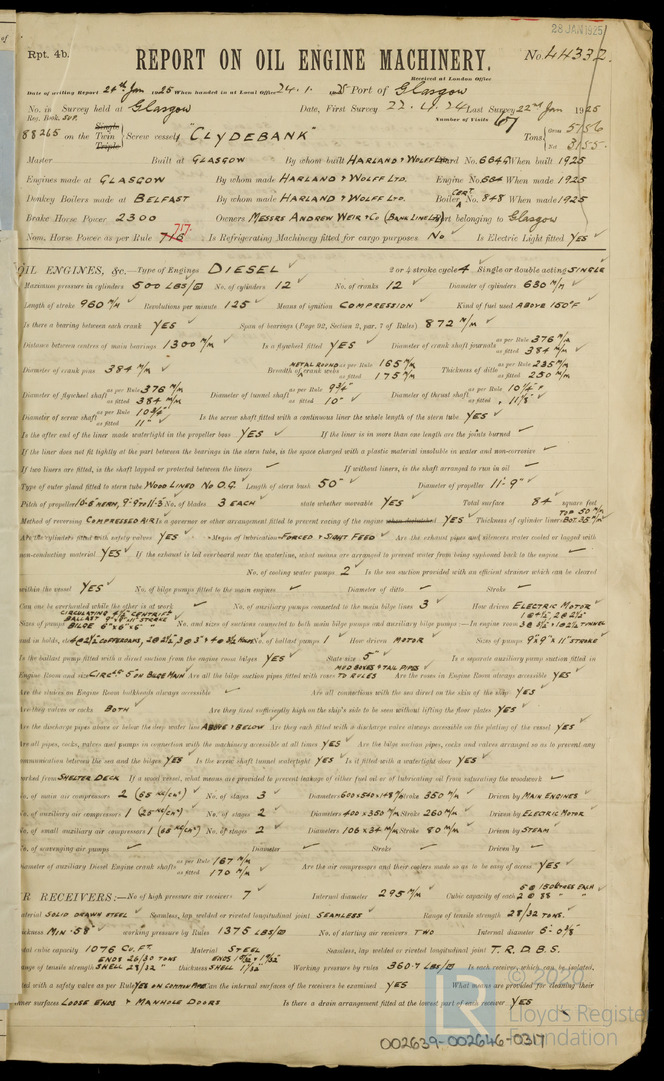 28 JAN 1925
Rpt. 4b.
REPORT ON OIL ENGINE MACHINERY.
No. 44332
Received at London Office
Date of writing Report 24th Jan 1925 When handed in at Local Office 24.1.25 Port of Glasgow
No. in Survey held at Glasgow Date, First Survey Last Survey 22nd Jan 1925
Reg. Book. SUP. Number of Visits 67
88265 on the Single Twin Triple Screw vessel "CLYDEBANK" Tons Gross 5156 Net 3155
Master Built at GLASGOW By whom built HARLAND & WOLFF LTD. Yard No. 684G When built 1925
Engines made at GLASGOW By whom made HARLAND & WOLFF LTD. Engine No. 684 When made 1925
Donkey Boilers made at BELFAST By whom made HARLAND & WOLFF LTD. Boiler CERT No. 848 When made 1925
Brake Horse Power 2300 Owners MESSRS ANDREW WEIR & CO (BANK LINE LTD) Port belonging to Glasgow
Nom. Horse Power as per Rule 716 717 Is Refrigerating Machinery fitted for cargo purposes NO Is Electric Light fitted YES
OIL ENGINES, &c.—Type of Engines DIESEL 2 or 4 stroke cycle 4 Single or double acting SINGLE
Maximum pressure in cylinders 500 LBS/□" No. of cylinders 12 No. of cranks 12 Diameter of cylinders 630 M/M
Length of stroke 960 M/M Revolutions per minute 125 Means of ignition COMPRESSION Kind of fuel used ABOVE 150°F
Is there a bearing between each crank YES Span of bearings (Page 92, Section 2, par. 7 of Rules) 872 M/M
Distance between centres of main bearings 1300 M/M Is a flywheel fitted YES Diameter of crank shaft journals as per Rule 376 M/M as fitted 384 M/M
Diameter of crank pins 384 M/M Breadth of crank webs METAL ROUND as per Rule 165 M/M as fitted 175 M/M Thickness of ditto as per Rule 235 M/M as fitted 250 M/M
Diameter of flywheel shaft as per Rule 376 M/M as fitted 384 M/M Diameter of tunnel shaft as per Rule 9¾" as fitted 10" Diameter of thrust shaft as per Rule 10¼" as fitted 11⅛"
Diameter of screw shaft as per Rule 10¾" as fitted 11" Is the screw shaft fitted with a continuous liner the whole length of the stern tube YES
Is the after end of the liner made watertight in the propeller boss YES If the liner is in more than one length are the joints burned —
If the liner does not fit tightly at the part between the bearings in the stern tube, is the space charged with a plastic material insoluble in water and non-corrosive —
If two liners are fitted, is the shaft lapped or protected between the liners — If without liners, is the shaft arranged to run in oil —
Type of outer gland fitted to stern tube WOOD LINED NO O.G. Length of stern bush 50" Diameter of propeller 11'-9"
Pitch of propeller No. of blades 3 EACH state whether moveable YES Total surface 84 square feet
Method of reversing COMPRESSED AIR Is a governor or other arrangement fitted to prevent racing of the engine when declutched YES Thickness of cylinder liners TOP 50 M/M BOT. 35 M/M
Are the cylinders fitted with safety valves YES Means of lubrication FORCED & SIGHT FEED Are the exhaust pipes and silencers water cooled or lagged with
non-conducting material YES If the exhaust is led overboard near the waterline, what means are arranged to prevent water from being syphoned back to the engine —
No. of cooling water pumps 2 Is the sea suction provided with an efficient strainer which can be cleared
within the vessel YES No. of bilge pumps fitted to the main engines — Diameter of ditto — Stroke —
Can one be overhauled while the other is at work — No. of auxiliary pumps connected to the main bilge lines 3 How driven ELECTRIC MOTOR
Sizes of pumps BALLAST 9"×9"×11" STROKE BILGE 6"×6"×6" No. and sizes of suctions connected to both main bilge pumps and auxiliary bilge pumps:—In engine room
and in holds, etc. No. of ballast pumps 1 How driven MOTOR Sizes of pumps 9"×9"×11" STROKE
Is the ballast pump fitted with a direct suction from the engine room bilges YES State size 5" Is a separate auxiliary pump suction fitted in
Engine Room and size 5" ON BILGE MAIN Are all the bilge suction pipes fitted with roses MUD BOXES & TAIL PIPES TO RULES Are the roses in Engine Room always accessible YES
Are the sluices on Engine Room bulkheads always accessible — Are all connections with the sea direct on the skin of the ship YES
Are they valves or cocks BOTH Are they fixed sufficiently high on the ship's side to be seen without lifting the floor plates YES
Are the discharge pipes above or below the deep water line ABOVE & BELOW Are they each fitted with a discharge valve always accessible on the plating of the vessel YES
Are all pipes, cocks, valves and pumps in connection with the machinery accessible at all times YES Are the bilge suction pipes, cocks and valves arranged so as to prevent any
communication between the sea and the bilges YES Is the screw shaft tunnel watertight YES Is it fitted with a watertight door YES
worked from SHELTER DECK If a wood vessel, what means are provided to prevent leakage of either fuel oil or of lubricating oil from saturating the woodwork —
No. of main air compressors 2 (65 KG/CM²) No. of stages 3 Diameters Stroke 350 M/M Driven by MAIN ENGINES
No. of auxiliary air compressors 1 (25 KG/CM²) No. of stages 2 Diameters 400 × 350 M/M Stroke 260 M/M Driven by ELECTRIC MOTOR
No. of small auxiliary air compressors 1 (65 KG/CM²) No. of stages 2 Diameters 106 × 34 M/M Stroke 80 M/M Driven by STEAM
No. of scavenging air pumps — Diameter — Stroke — Driven by —
Diameter of auxiliary Diesel Engine crank shafts as per Rule 167 M/M as fitted 170 M/M Are the air compressors and their coolers made so as to be easy of access YES
AIR RECEIVERS:—No. of high pressure air receivers 7 Internal diameter 295 M/M Cubic capacity of each
Material SOLID DRAWN STEEL Seamless, lap welded or riveted longitudinal joint SEAMLESS Range of tensile strength 28/32 TONS.
thickness MIN .58" working pressure by Rules 1375 LBS/□" No. of starting air receivers TWO Internal diameter 5'-0⅛"
Total cubic capacity 1076 CU. FT. Material STEEL Seamless, lap welded or riveted longitudinal joint T.R.D.B.S.
Range of tensile strength ENDS 26/30 TONS SHELL 28/32 " thickness SHELL 1⅟₃₂" Working pressure by rules 360.7 LBS/□" Is each receiver, which can be isolated,
fitted with a safety valve as per Rule YES ON COMMON PIPE Can the internal surfaces of the receivers be examined YES What means are provided for cleaning their
inner surfaces LOOSE ENDS & MANHOLE DOORS Is there a drain arrangement fitted at the lowest part of each receiver YES
© 2020
LR
Lloyd's Register
Foundation
002639-002646-0317